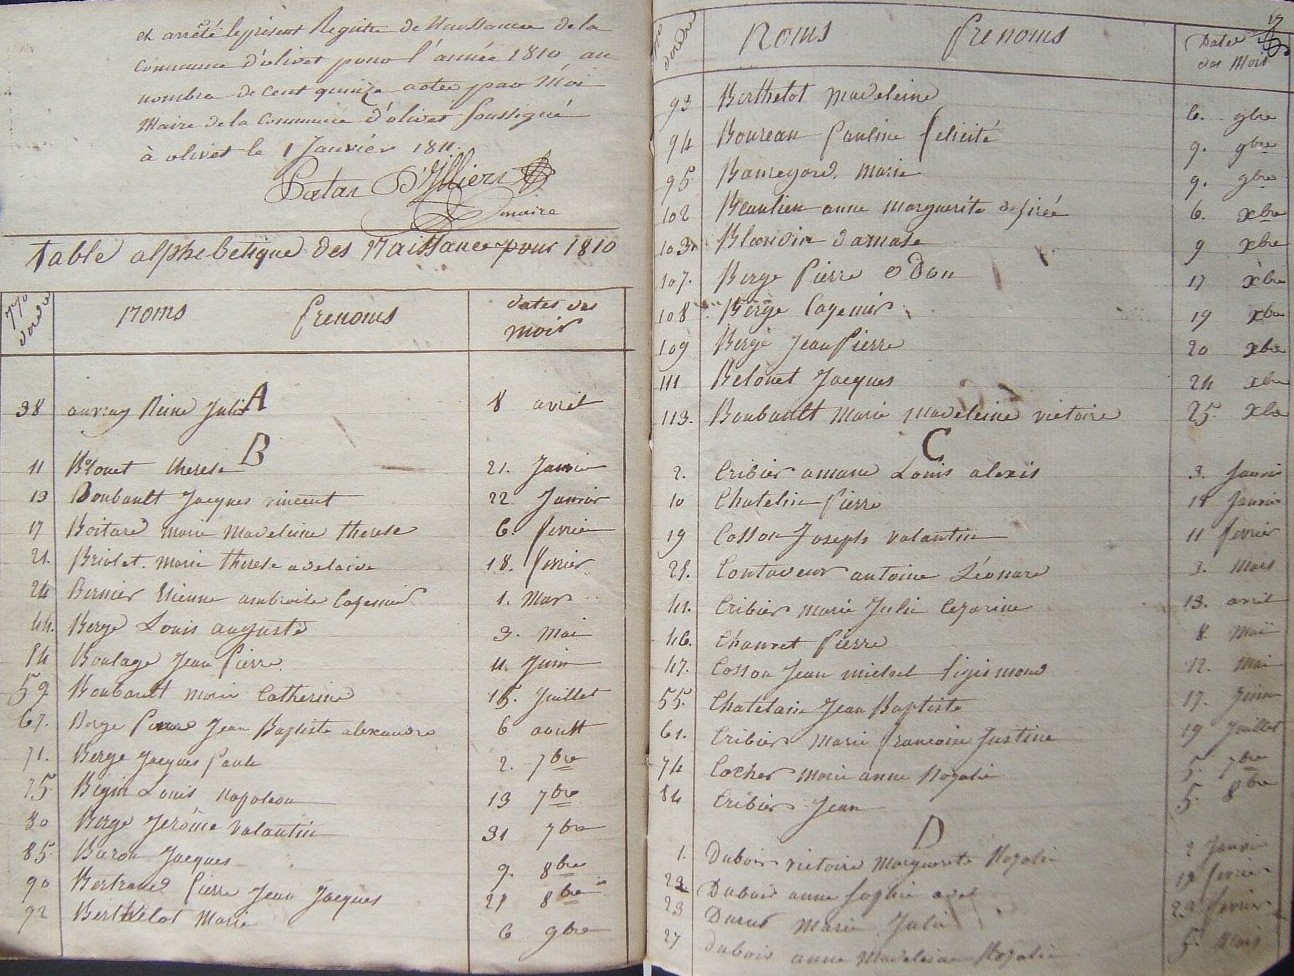 et arrêté le present Registre de Naissance de la
Commune d'olivet pour l'année 1810, au
nombre de cent quinze actes par Moi
Maire de la Commune d'olivet soussigné
à olivet le 1 Janvier 1811.
D'Illiers
maire
Table alphabetique des Naissance pour 1810
Nos d'ordre Noms Prenoms dates des mois
A
38 auvray Reine Julie 8 avril
B
11 Blouet therese 21. Janvier
13 Boubault Jacques vincent 22 Janvier
17 Boitard marie Madeleine therese 6. fevrier
21. Briolet. marie therese adelaide 18. fevrier
24 Bernier Etienne ambroise Casemir 1. Mars
44. Berge Louis auguste 3. Mai
54 Boulage Jean Pierre 4. Juin
59 Boubault marie Catherine 15. Juillet
67. Berge Pierre Jean Baptiste alexandre 6 aoust
71. Berge Jacques Paule 2. 7bre
75 Begin Louis Napoleon 13 7bre
80 Berge Jerôme valantin 31 7bre
85. Baron Jacques 9. 8bre
90 Bertrand Pierre Jean Jacques 21 8bre
92 Berthelot Marie 6 9bre
Nos d'ordre Noms Prenoms Dates des Mois
93 Berthelot Madeleine 6. 9bre
94 Boureau Pauline felicité 9. 9bre
95 Marie 9. 9bre
102 Beaulieu anne marguerite desirée 6. xbre
103. Blondin damase 9 xbre
107. Berge Pierre Odon 17 xbre
108. Berge Casemir 19 xbre
109 Berge Jean Pierre 20 xbre
111 Belouet Jacques 24 xbre
113. Boubault Marie Madeleine victoire 25. xbre
C
2. Cribier amand Louis alexis 3. Janvier
10 Chatelin Pierre 18 Janvier
19 Cosson Joseph valantin 11 fevrier
25. antoine Léonard 3. Mars
41. Cribier marie Julie Cezarine 13. avril
46. Chauvet Pierre 8 Mai
47. Cosson Jean michel sigismond 12. Mai
55. Chatelain Jean Baptiste 17. Juin
61. Cribier Marie francoise Justine 19 Juillet
74 Cocher Marie anne Rozalie 5. 7bre
84 Cribier Jean 5. 8bre
D
1. Dubois victoire Marguerite Rozalie 2 Janvier
22 Dubois anne Sophie 19 fevrier
23 Marie Julie 23 fevrier
27 Dubois anne Madeleine Rozalie 5. Mars